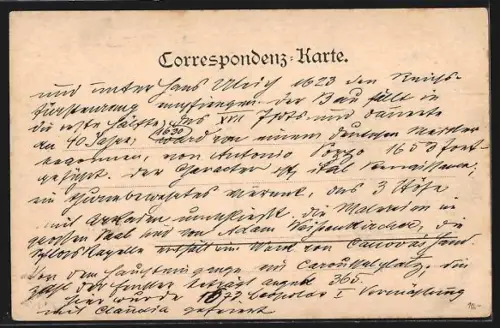 Correspondenz-Karte.
und unter Hans Ulrich 1623 den Reichs-
fürstenrang empfiengen. Der Bau fällt in
die erste Hälfte des XVII Jhdts und dauerte
an 40 Jahre, 1630 ward von einem deutschen Meister
begonnen, von Antonio Pozzo 1650 fort-
geführt. Der Character ist ital. Renaissance;
ein thurmbewehrtes Viereck, das 3 Höfe
mit Arkaden umschließt, die Malereien im
großen Saal sind von Adam Weißenkircher, die
Schloss Kapelle enthält ein Werk von Canova
An dem Haupteingange ein Caroussellplatz, die
Zahl der Fenster beträgt angebl 365.
Hier wurde 1673 Leopolds I Vermählung
mit Claudia gefeiert